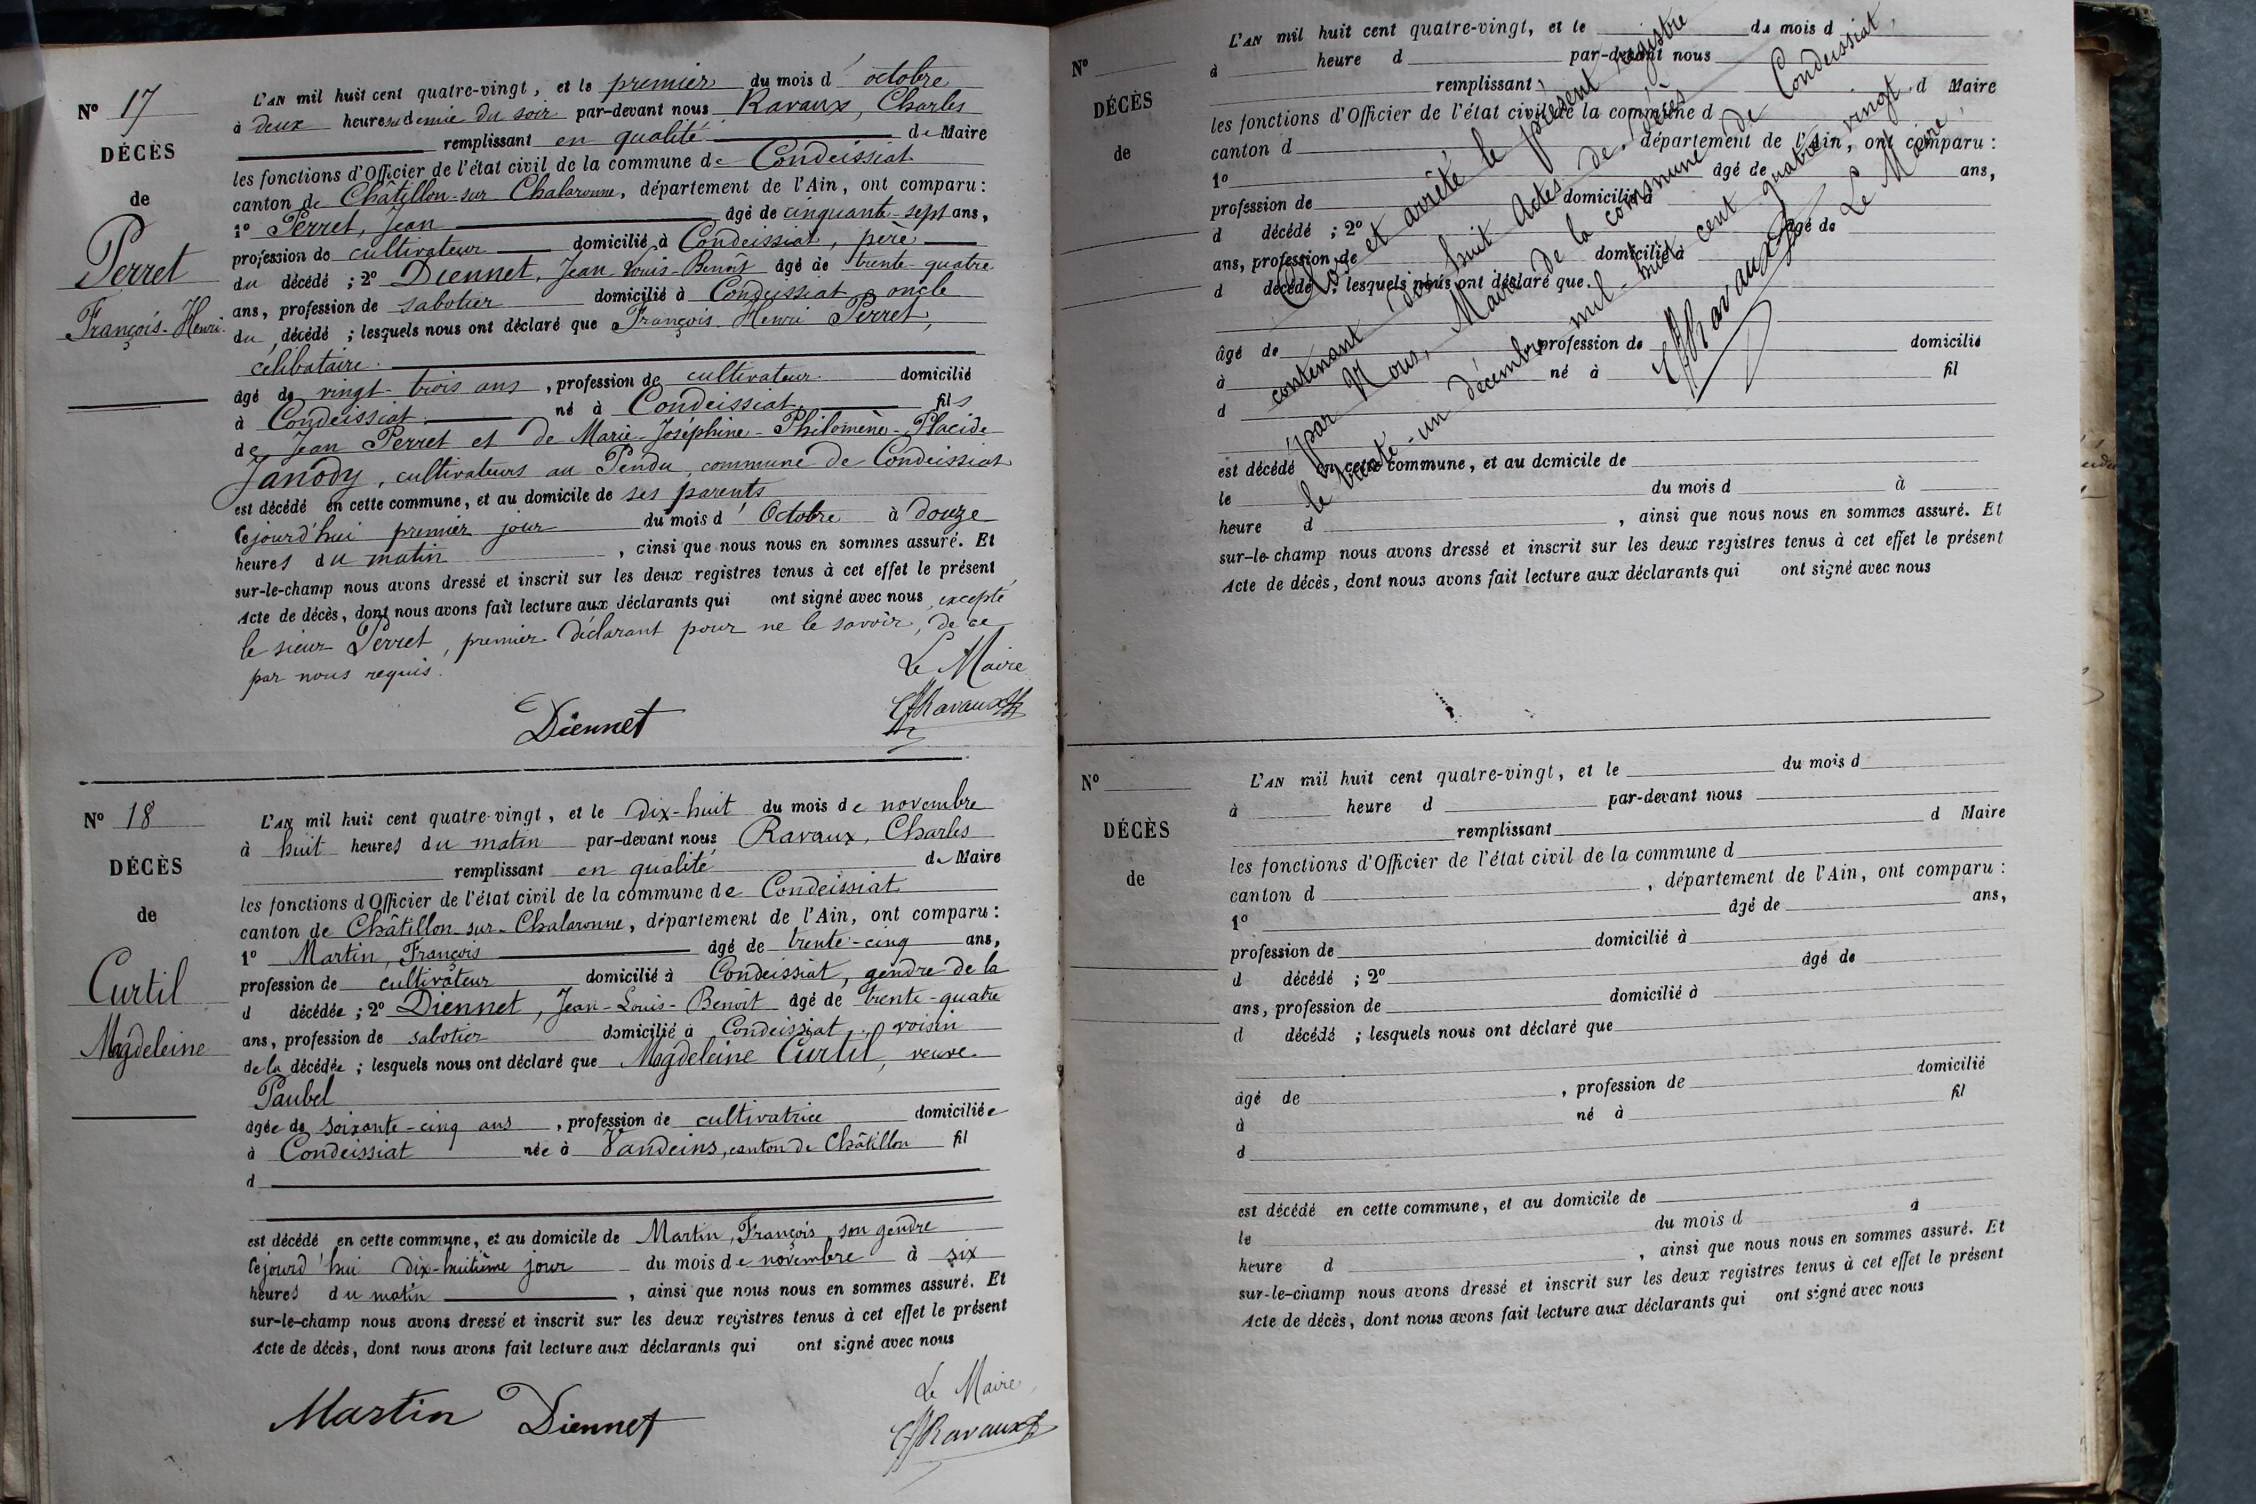 N° 17
DÉCÈS
de
Perret
François-Henri.
L'AN mil huit cent quatre-vingt, et le premier du mois d'octobre
à deux heures et demie du soir par-devant nous Ravaux, Charles
remplissant en qualité de Maire
les fonctions d'Officier de l'état civil de la commune de Condeissiat
canton de Châtillon-sur-Chalaronne, département de l'Ain, ont comparu :
1° Perret, Jean âgé de cinquante-sept ans,
profession de cultivateur domicilié à Condeissiat, père
du décédé ; 2° Diennet, Jean-Louis-Benoît âgé de trente-quatre
ans, profession de sabotier domicilié à Condeissiat, oncle
du décédé ; lesquels nous ont déclaré que François-Henri Perret,
célibataire.
âgé de vingt-trois ans, profession de cultivateur domicilié
à Condeissiat né à Condeissiat fils
de Jean Perret et de Marie-Joséphine-Philomène-Placide
Janody, cultivateurs au Pendu, commune de Condeissiat
est décédé en cette commune, et au domicile de ses parents
cejourd'hui premier jour du mois d'Octobre à douze
heures du matin, ainsi que nous nous en sommes assuré. Et
sur-le-champ nous avons dressé et inscrit sur les deux registres tenus à cet effet le présent
Acte de décès, dont nous avons fait lecture aux déclarants qui ont signé avec nous, excepté
le sieur Perret, premier déclarant pour ne le savoir, de ce
par nous requis.
Le Maire
Diennet
Ravaux
N° 18
DÉCÈS
de
Curtil
Magdeleine
L'AN mil huit cent quatre-vingt, et le dix-huit du mois de novembre
à huit heures du matin par-devant nous Ravaux, Charles
remplissant en qualité de Maire
les fonctions d'Officier de l'état civil de la commune de Condeissiat
canton de Châtillon-sur-Chalaronne, département de l'Ain, ont comparu :
1° Martin, François âgé de trente-cinq ans,
profession de cultivateur domicilié à Condeissiat, gendre de la
d décédée ; 2° Diennet, Jean-Louis-Benoît âgé de trente-quatre
ans, profession de sabotier domicilié à Condeissiat, voisin
de la décédée ; lesquels nous ont déclaré que Magdeleine Curtil, veuve
Paubel
âgée de soixante-cinq ans, profession de cultivatrice domiciliée
à Condeissiat née à Vandeins, canton de Châtillon fil
d
est décédé en cette commune, et au domicile de Martin, François son gendre
cejourd'hui dix-huitième jour du mois de novembre à six
heures du matin, ainsi que nous nous en sommes assuré. Et
sur-le-champ nous avons dressé et inscrit sur les deux registres tenus à cet effet le présent
Acte de décès, dont nous avons fait lecture aux déclarants qui ont signé avec nous
Le Maire
Martin Diennet
Ravaux
N°
DÉCÈS
de
L'AN mil huit cent quatre-vingt, et le du mois d
à heure d par-devant nous
remplissant d Maire
les fonctions d'Officier de l'état civil de la commune d
canton d département de l'Ain, ont comparu :
1° âgé de ans,
profession de domicilié à
d décédé ; 2° âgé de
ans, profession de domicilié à
d décédé ; lesquels nous ont déclaré que
âgé de profession de domicilié
à né à fil
d
est décédé en cette commune, et au domicile de
le du mois d à
heure d , ainsi que nous nous en sommes assuré. Et
sur-le-champ nous avons dressé et inscrit sur les deux registres tenus à cet effet le présent
Acte de décès, dont nous avons fait lecture aux déclarants qui ont signé avec nous
Clos et arrêté le présent registre
contenant dix huit Actes de décès
par Nous, Maire de la commune de Condeissiat,
le trente-un décembre mil-huit cent quatre vingt.
Le Maire,
Ravaux
N°
DÉCÈS
de
L'AN mil huit cent quatre-vingt, et le du mois d
à heure d par-devant nous
remplissant d Maire
les fonctions d'Officier de l'état civil de la commune d
canton d , département de l'Ain, ont comparu :
1° âgé de ans,
profession de domicilié à
d décédé ; 2° âgé de
ans, profession de domicilié à
d décédé ; lesquels nous ont déclaré que
âgé de , profession de domicilié
à né à fil
d
est décédé en cette commune, et au domicile de
le du mois d à
heure d , ainsi que nous nous en sommes assuré. Et
sur-le-champ nous avons dressé et inscrit sur les deux registres tenus à cet effet le présent
Acte de décès, dont nous avons fait lecture aux déclarants qui ont signé avec nous